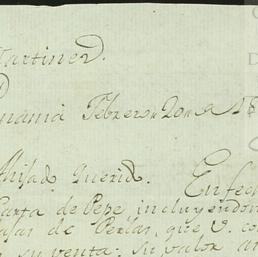 Martinez.
Febrero 20 de 18
Ahijado Querido. En fech
Carta de Pepe incluyendom
de Perlas, que V. co
su venta: su valor